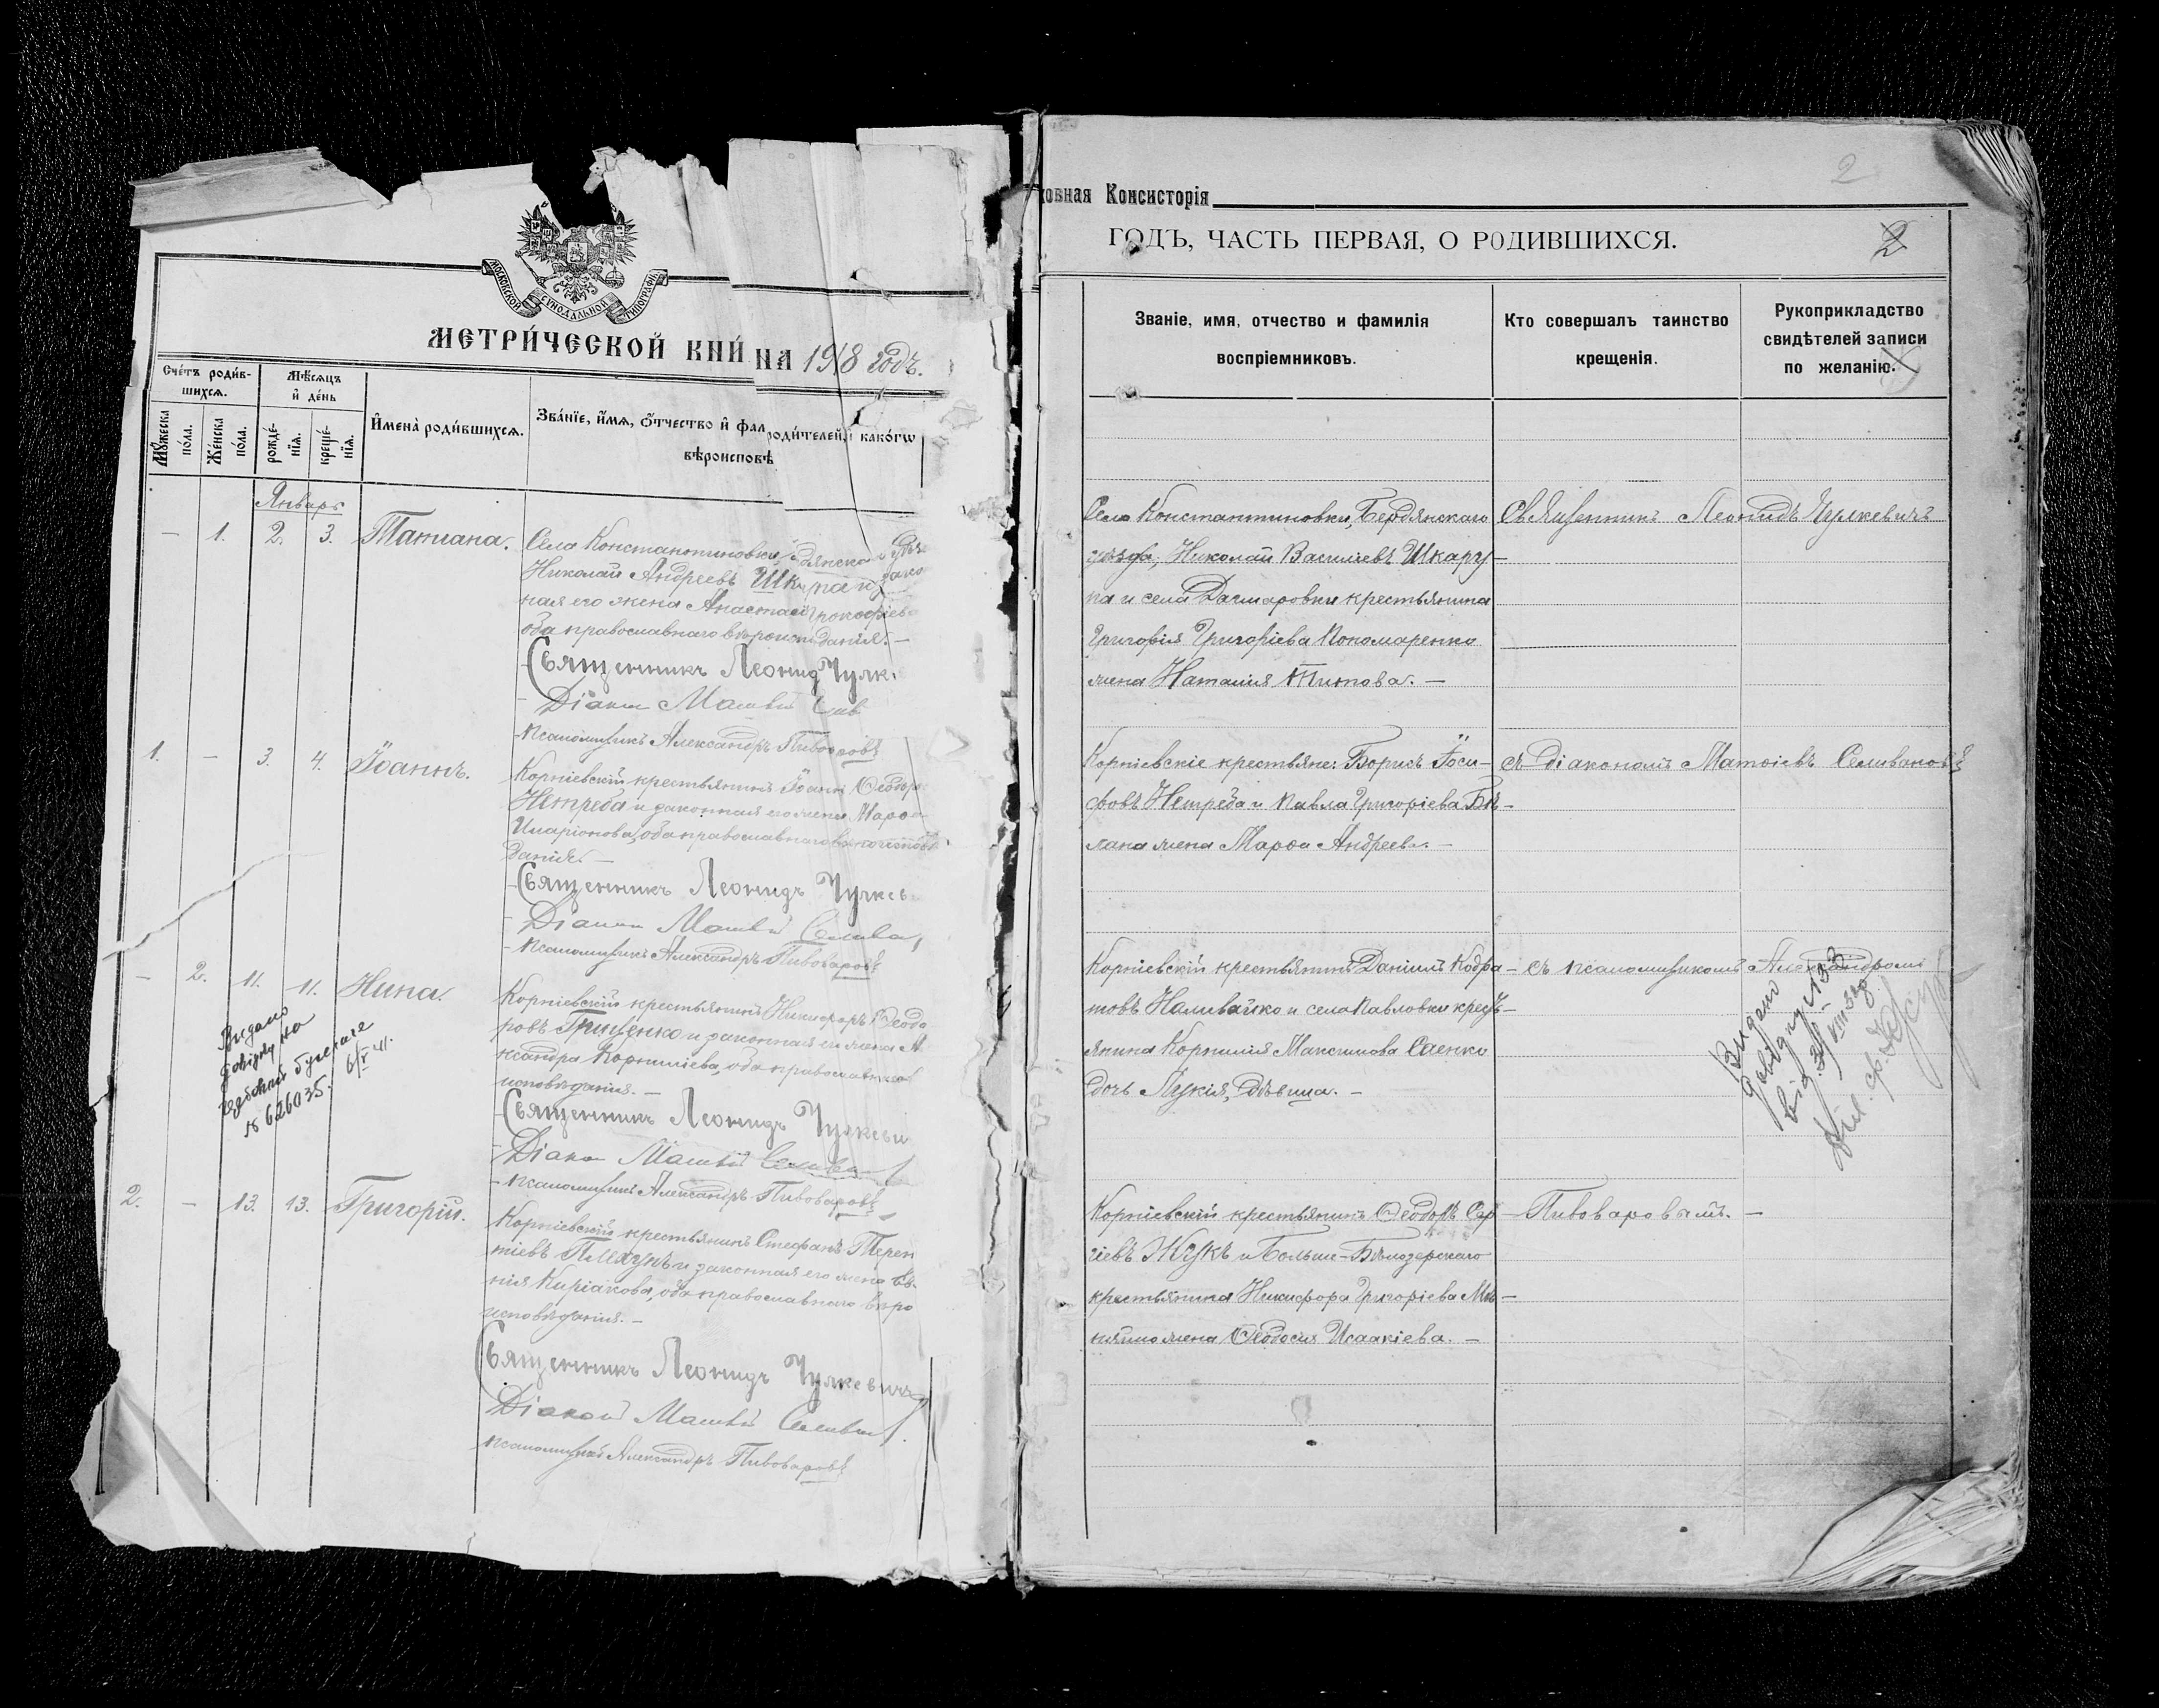 МОСКОВСКОЙ СѴНОДАЛЬНОЙ ТИПОГРАФІИ
МЕТРИ́ЧЕСКОЙ КНИ́ НА 1918 годъ.
Сче́тъ роди́в-
шихсѧ.
Мѣ́сѧцъ
и҆ де́нь
Мꙋ́жеска
по́ла.
Же́нска
по́ла.
рожде́-
нїѧ.
креще́-
нїѧ.
И҆мена̀ роди́вшихсѧ.
Зва́нїе, и҆́мѧ, ѻ҆́тчество и҆ фа
роди́телей, како́гѡ
вѣроисповѣ
Январь
— 1. 2. 3. Татиана.
Села Константиновки, дянска уѣз
Николай Андреевъ Шкар зако
ная его жена Анастасі Прокофіева
оба православнаго вѣроиспо данія. —
Священникъ Леонид Чулк
Діакон Матвѣй
Псаломщикъ Александръ Пивоваровъ
1. — 3. 4. Іоаннъ.
Корніевскій крестьянинъ Іоаннъ Ѳеодоро
Нетреба и законная его жена Марѳа
Иларіонова, оба православнаго вѣроисповѣ
данія. —
Священникъ Леонидъ Чулкев
Діакон Матвѣй Селива
Псаломщикъ Александръ Пивоваровъ
— 2. 11. 11. Нина.
Корніевскій крестьянинъ Никифоръ Ѳеодо
ровъ Грищенко и законная его жена Ал
ксандра Корниліева, оба православнаго
исповѣданія. —
Священникъ Леонидъ Чулкеви
Діакон Матвѣй Селива
Псаломщикъ Александръ Пивоваровъ
Видано
довідку на
№ 626035.
2. — 13. 13. Григорій.
Корніевскій крестьянинъ Стефанъ Терен
тіевъ и законная его жена Ев
нія Киріакова, оба православнаго вѣро
исповѣданія. —
Священникъ Леонидъ Чулкевичъ
Діакон Матвѣй Селиван
Псаломщикъ Александръ Пивоваровъ
2
овная Консисторія
ГОДЪ, ЧАСТЬ ПЕРВАЯ, О РОДИВШИХСЯ.
2
Званіе, имя, отчество и фамилія
воспріемниковъ.
Кто совершалъ таинство
крещенія.
Рукоприкладство
свидѣтелей записи
по желанію.
Села Константиновки, Бердянскаго
уѣзда, Николай Васильевъ Шкару-
па и села Дахмаровки крестьянина
Григорія Григоріева Пономаренко
жена Наталія Титова. —
Священникъ Леонидъ Чулкевичъ
Корніевскіе крестьяне: Борисъ Іоси-
фовъ Нетреба и Павла Григоріева Бѣ-
лана жена Марѳа Андреева. —
съ діакономъ Матѳіемъ Селивановъ
Корніевскій крестьянинъ Даніилъ Кодра-
товъ Наливайко и села Павловки крест-
янина Корнилія Максимова Саенко
дочь Лукія, дѣвица. —
съ псаломщикомъ Александромъ
Видано
довідку № 33
Корніевскій крестьянинъ Ѳеодоръ Сер-
гіевъ Жукъ и Больше-Бѣлозерскаго
крестьянина Никифора Григоріева Мѣ-
няйло жена Ѳеодосія Исаакіева. —
Пивоваровымъ. —